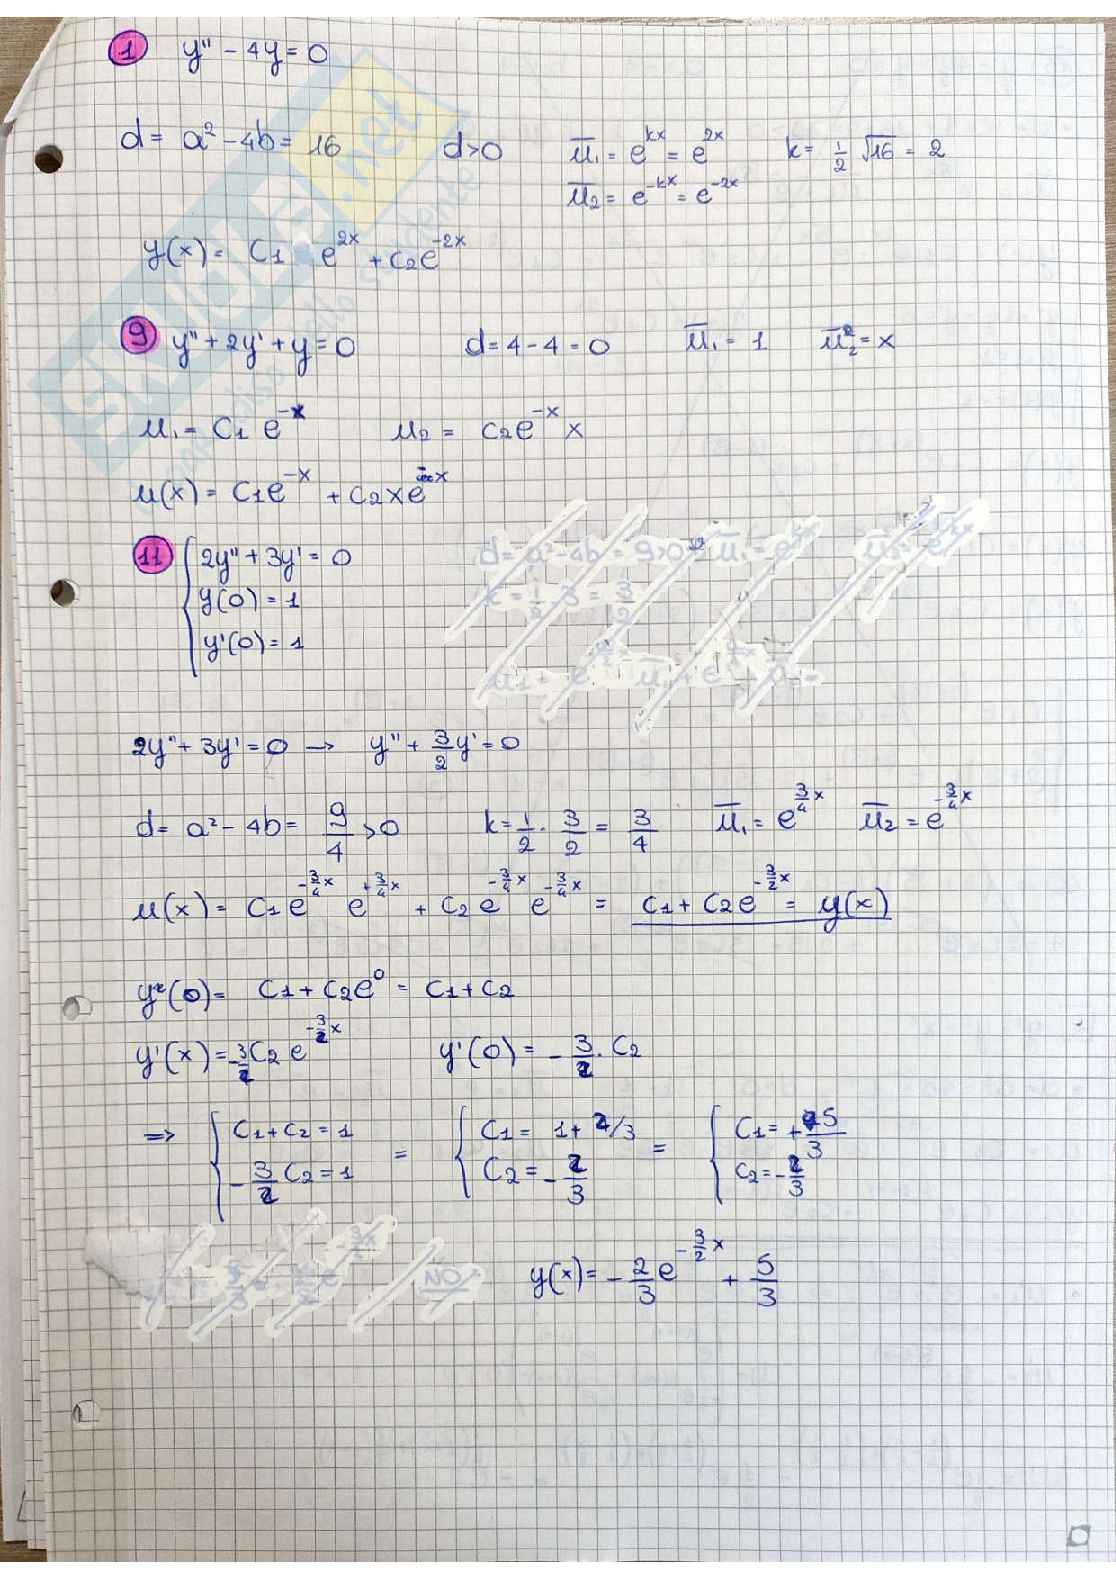 1 y'' - 4y = 0
d = a² - 4b = 16 d>0 u̅₁ = e^{kx} = e^{2x} k = 1/2 √16 = 2
u̅₂ = e^{-kx} = e^{-2x}
y(x) = C1 e^{2x} + C2 e^{-2x}
9 y'' + 2y' + y = 0 d = 4 - 4 = 0 u̅₁ = 1 u̅₂ = x
u₁ = C1 e^{-x} u2 = C2 e^{-x} x
u(x) = C1 e^{-x} + C2 x e^{-x}
11 { 2y'' + 3y' = 0
y(0) = 1
y'(0) = 1
d = a² - 4b = 9>0 u̅₁ = e
k = 1/2 3 = 3/2
2y'' + 3y' = 0 → y'' + 3/2 y' = 0
d = a² - 4b = 9/4 > 0 k = 1/2 · 3/2 = 3/4 u̅₁ = e^{3/4 x} u̅₂ = e^{-3/4 x}
u(x) = C1 e^{-3/4 x} e^{+3/4 x} + C2 e^{-3/4 x} e^{-3/4 x} = C1 + C2 e^{-3/2 x} = y(x)
y(0) = C1 + C2 e^0 = C1 + C2
y'(x) = -3/2 C2 e^{-3/2 x} y'(0) = -3/2 · C2
⇒ { C1 + C2 = 1 = { C1 = 1 + 2/3 = { C1 = +5/3
-3/2 C2 = 1 C2 = -2/3 C2 = -2/3
NO
y(x) = -2/3 e^{-3/2 x} + 5/3
SKUOLA.net